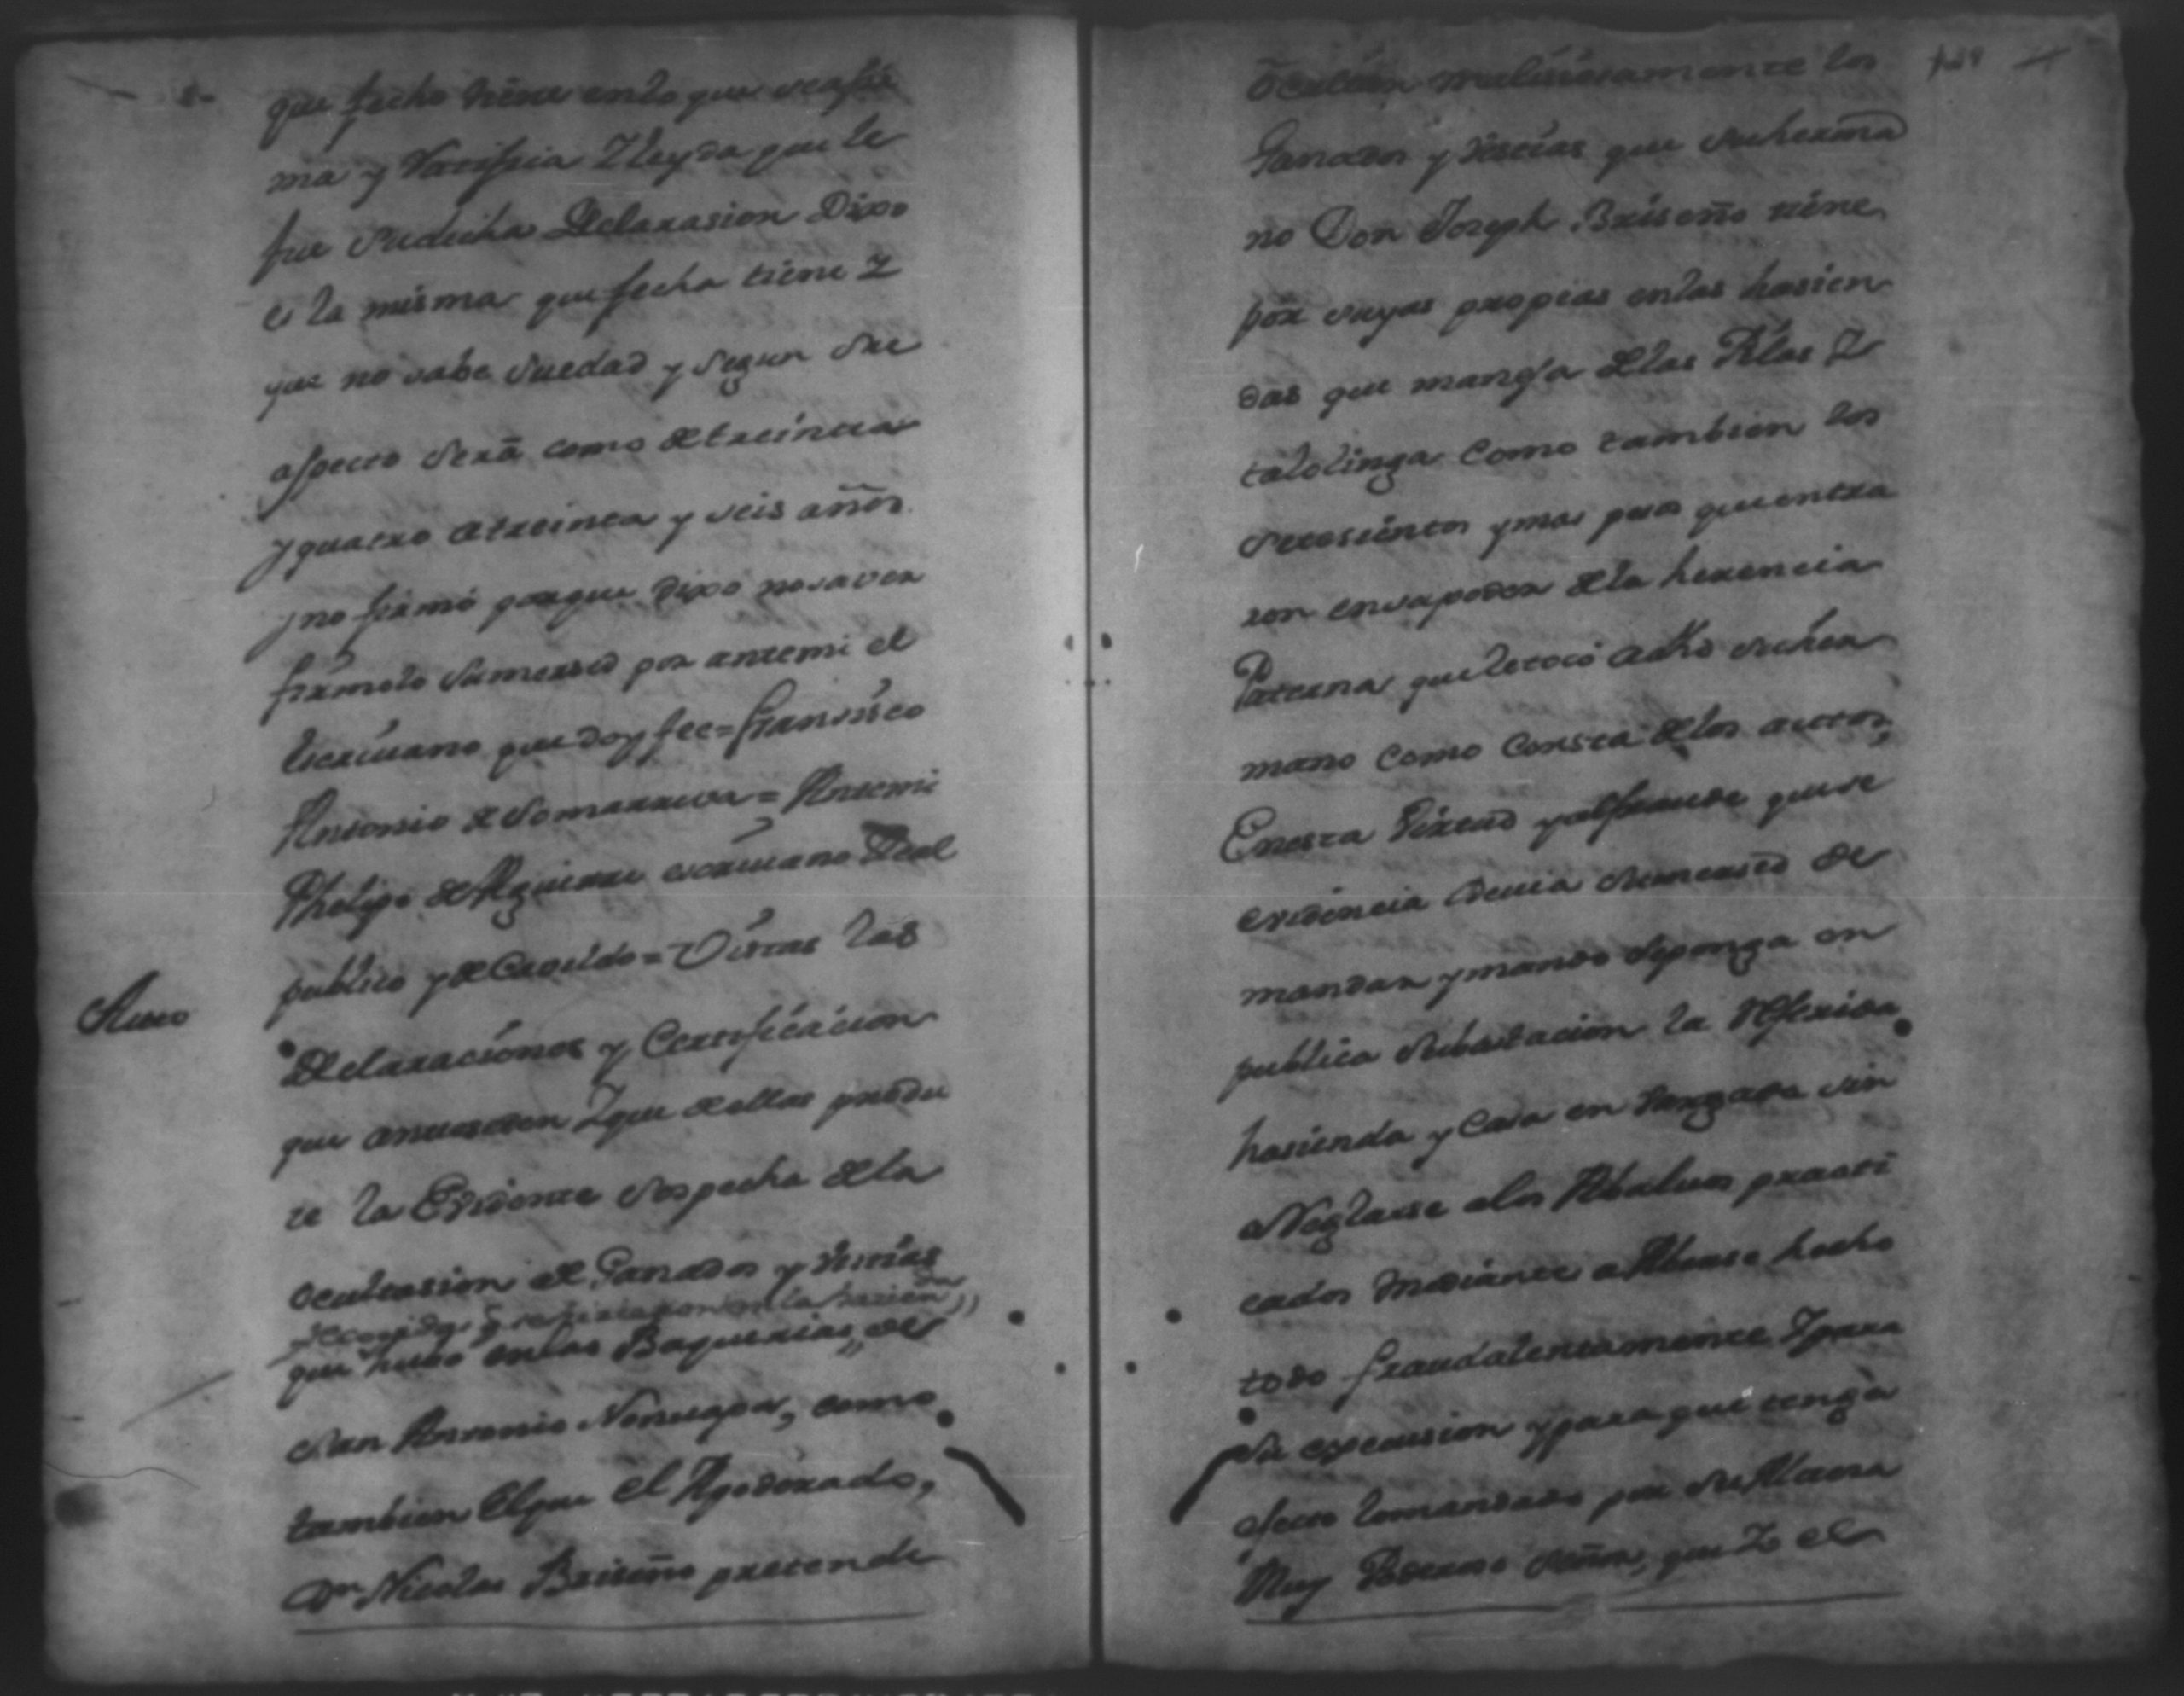 que fecho tiene en lo que se afir
ma y Ratifica Y leyda que le
fue su dicha Declarasion Dixo
es la misma que fecha tiene Y
que no sabe su edad y segun su
aspecto será como de treinta
y quatro a treinta y seis años
y no firmó porque dixo no saver
firmolo sumersed por antemi el
Escrivano que doy fee = Fransisco
Antonio de Somarriva = Antemi
Phelipe de Aguirre escrivano Real
publico y de Cavildo = Vistas las
Auto
Declaraciones y Certificacion
que anteseden Y que de ellas produ
ce la Evidente sospecha de la
ocultasion de Ganados y vestias
que hubo en las Baquerias, de
San Antonio Nonuapa, como
tambien el que el Apoderado,
Dn Nicolas Briseño pretende
Ocultar malisiosamente los
Ganados y vestias que su herma
no Don Joseph Briseño tiene
por suyas propias en las hasien
das que maneja de las Yslas Y
talolinga como tambien los
setesientos y mas pesos que entra
ron en su poder de la herencia
Paterna que le tocó a dho su her
mano como consta de los autos,
En esta Virtud y al fraude que se
evidencia devia sumersed de
mandar y mando se ponga en
publica subastacion la Referida
hasienda y Casa en sin
a Reglarse a los Abaluos practi
cados mediante a Aberse hecho
todo fraudalentamente Y para
su execusion y para que tenga
efecto lo mandado por su Altesa
Muy Poderoso Señor, que Yo el